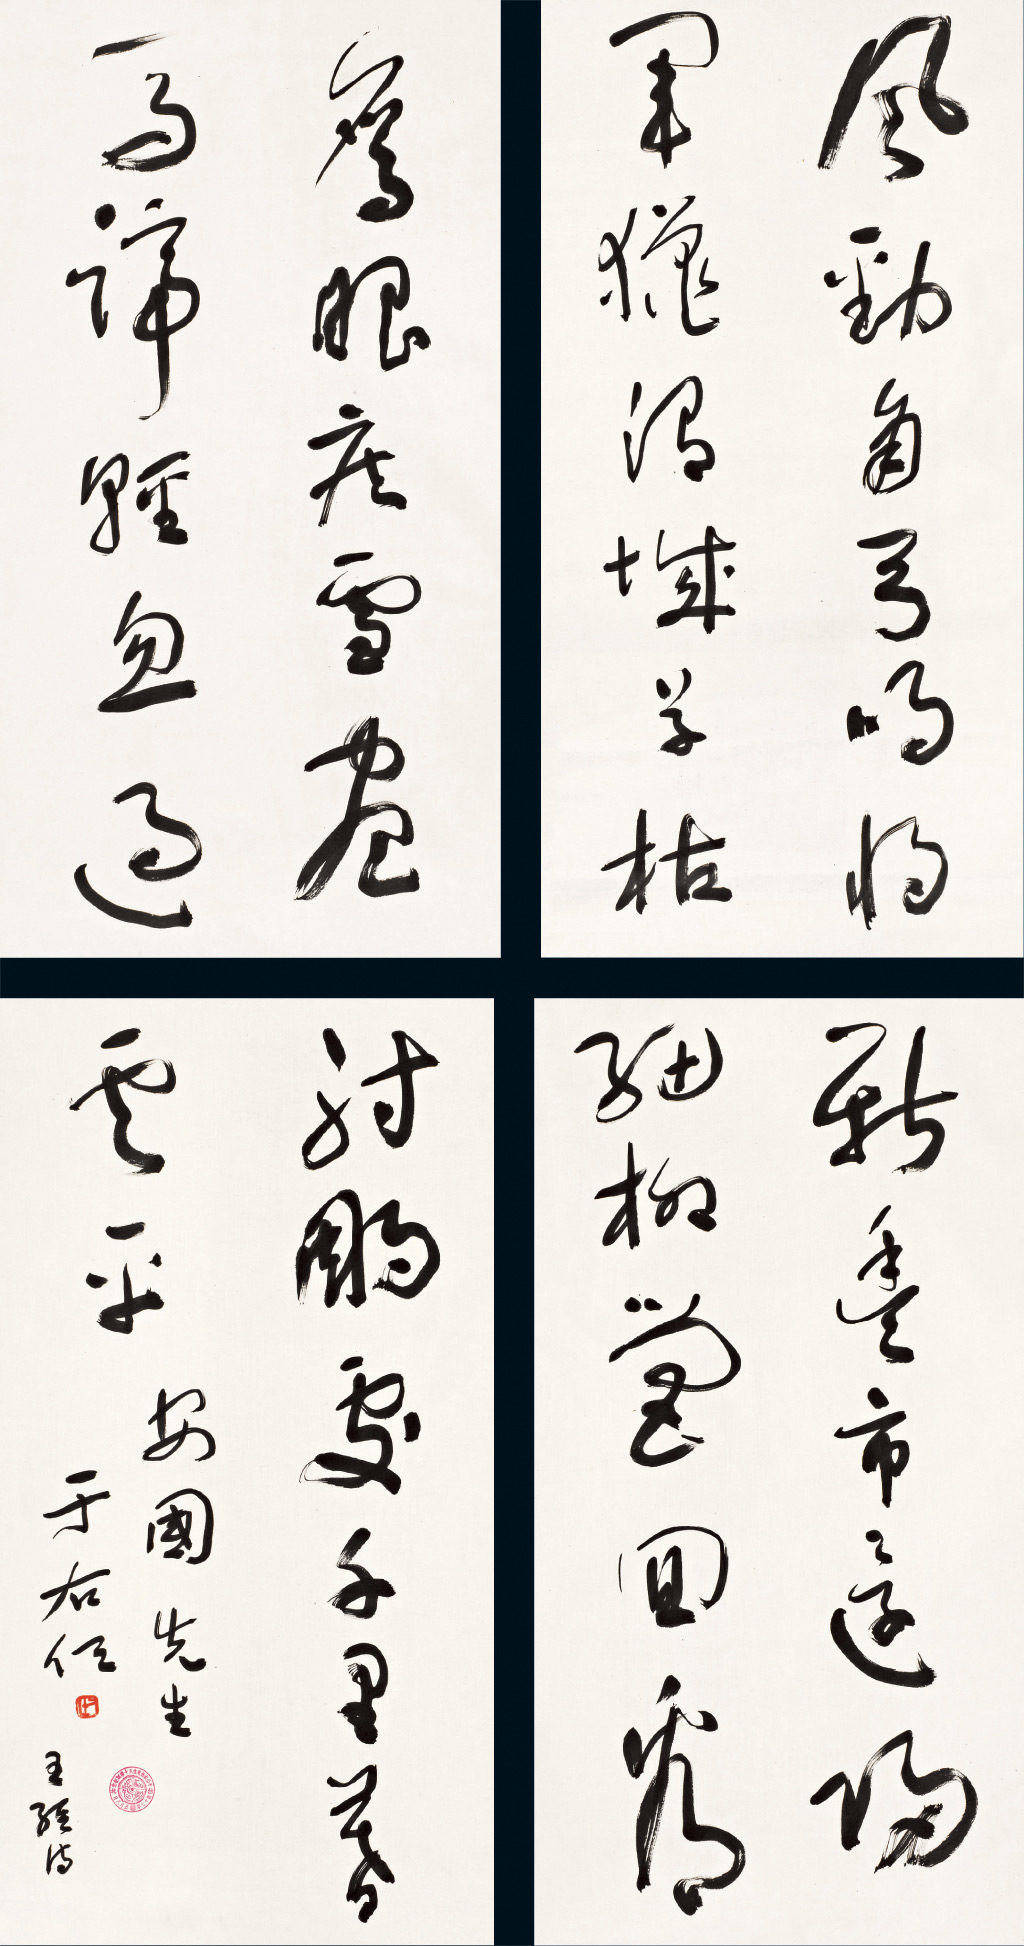 風勁角弓鳴將
軍獵渭城草枯
鷹眼疾雪盡
馬蹄輕忽過
新豐市還歸
細柳營回看
射鵰處千里暮
雲平
安國先生
于右任
王維詩